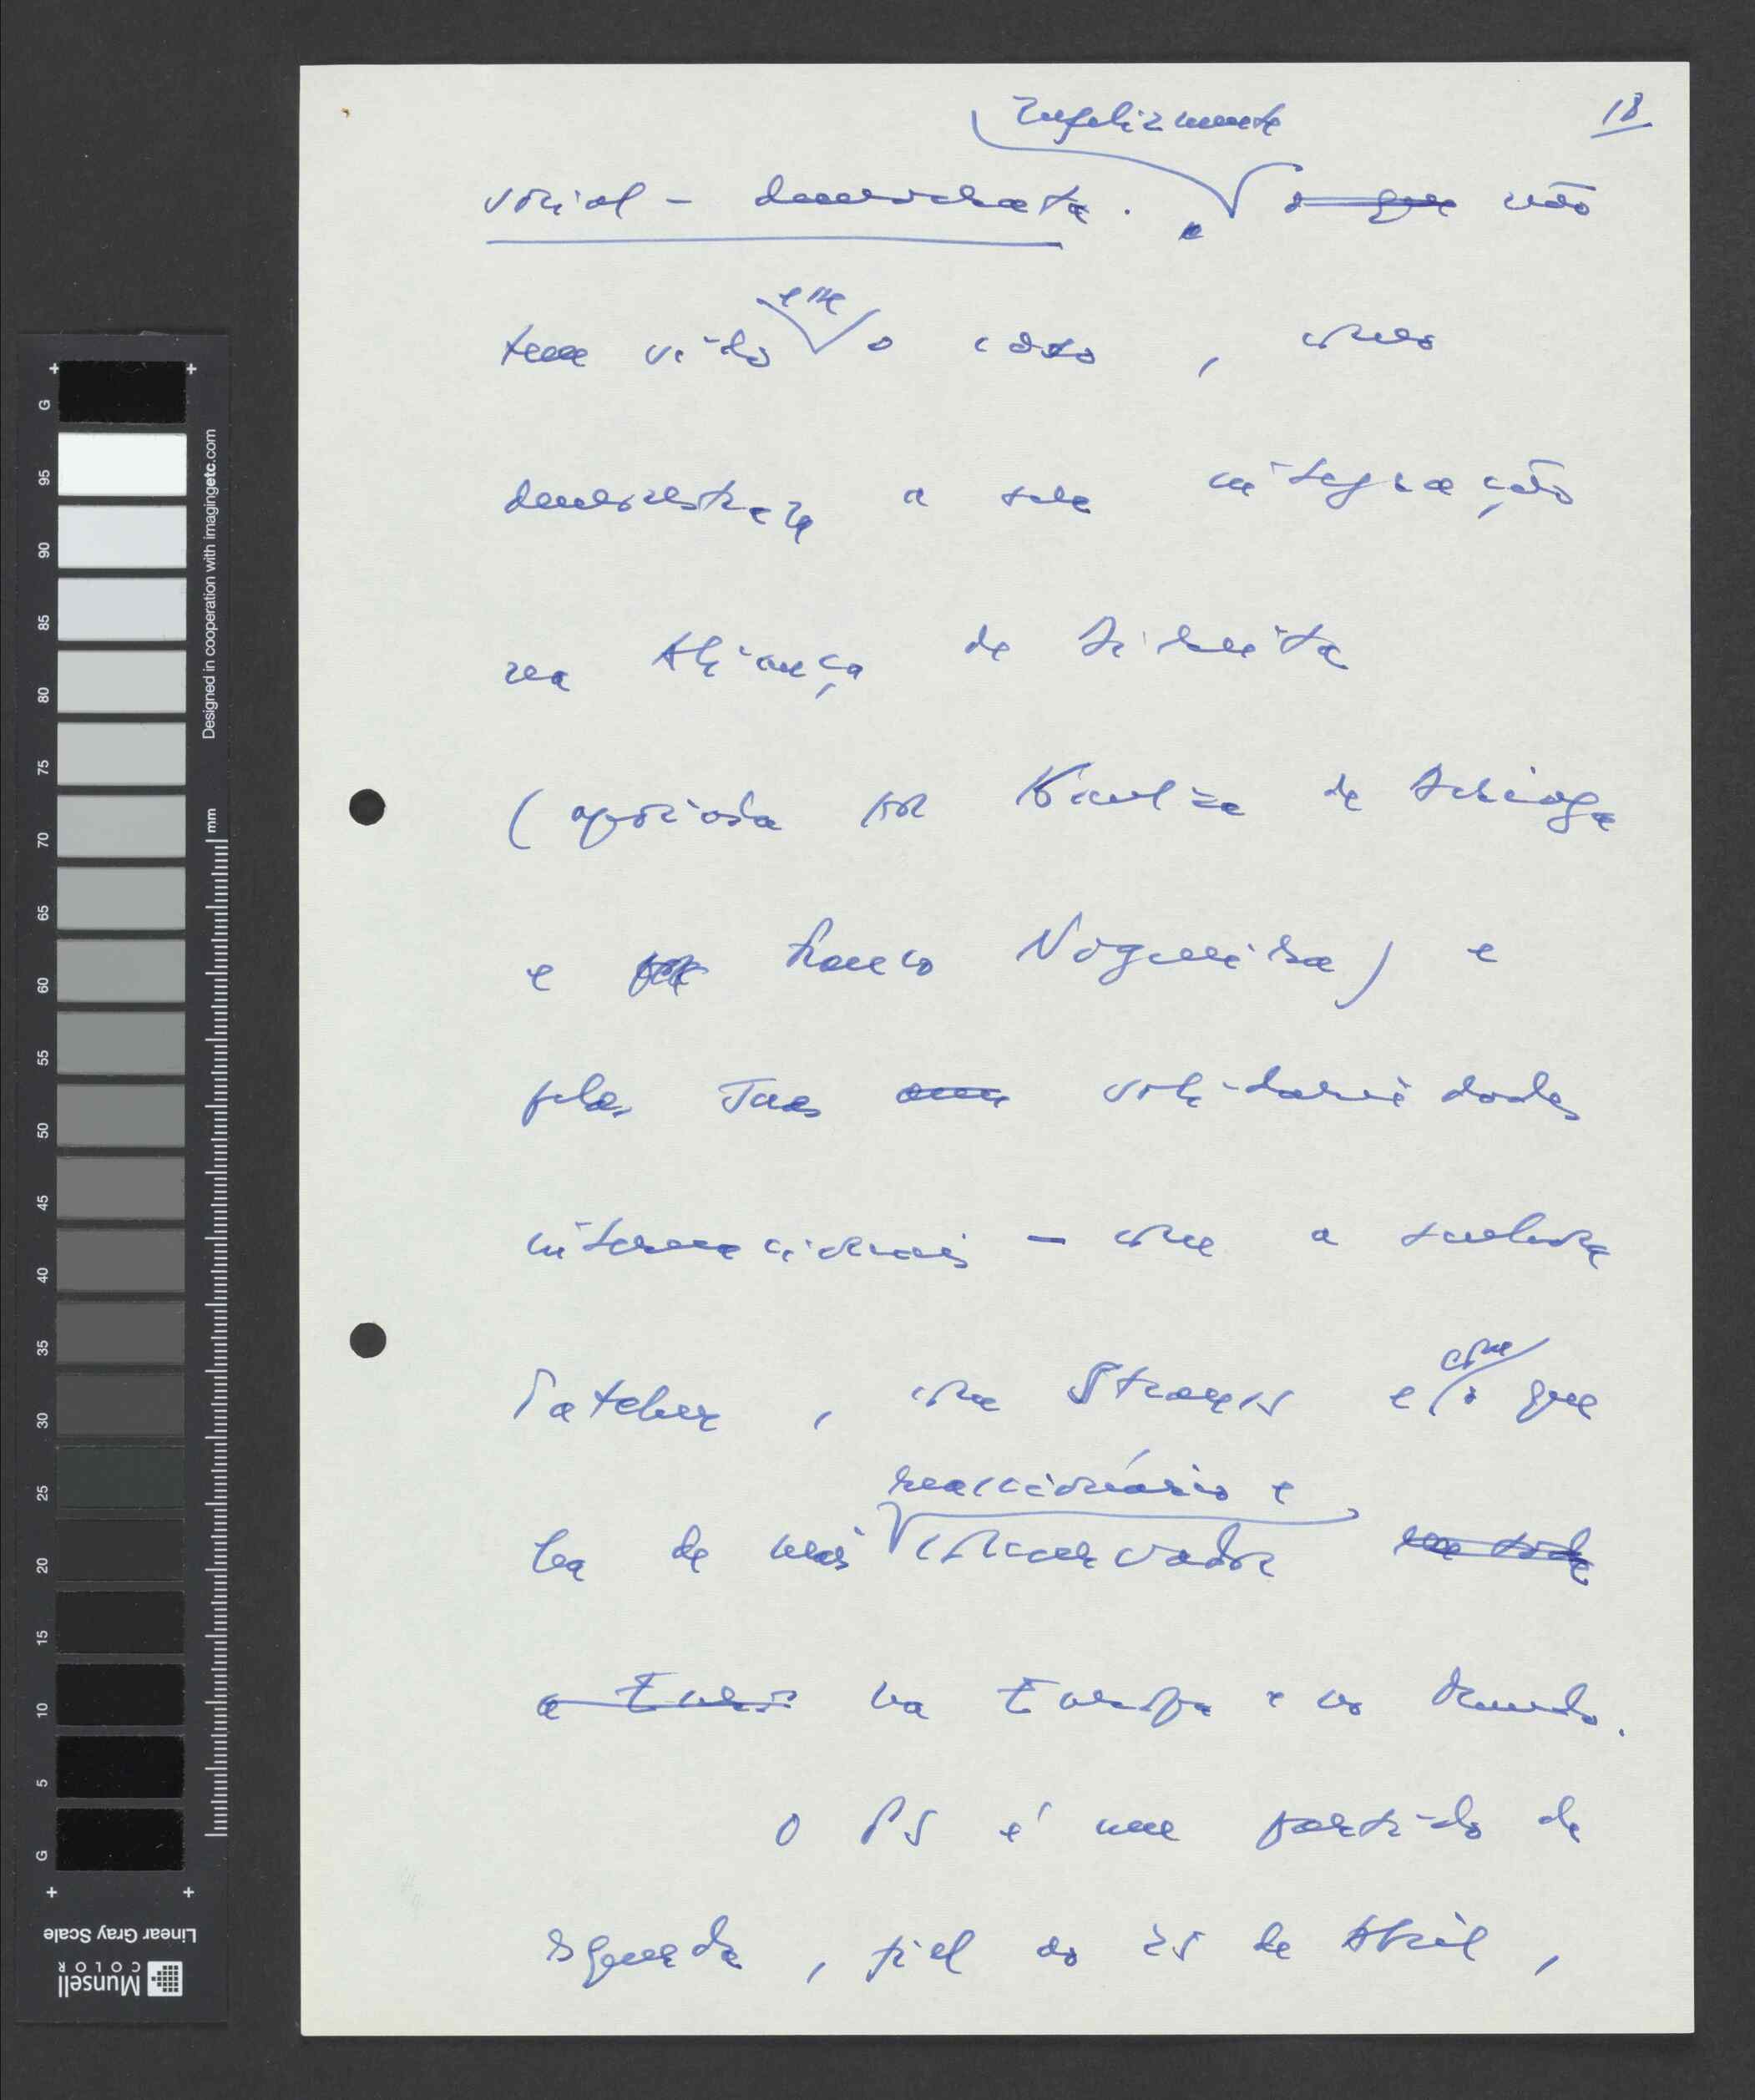 18
Infelizmente
social-democrata. e o que não
tem sido esse o caso, como
demonstra a sua integração
na Aliança de direita
(apoiada por Kaulza de Arriaga
e por Franco Nogueira) e
pelas suas solidariedades
internacionais - com a senhora
Tatcher, com Strauss e com o que
reaccionário e
há de mais conservador em toda
a Euro na Europa e no Mundo.
O PS é um partido de
esquerda, fiel ao 25 de Abril,
G
95
90
85
80
75
70
65
60
55
50
45
40
35
30
25
20
15
10
5
G
mm
Designed in cooperation with imagingetc.com
Linear Gray Scale
Munsell
COLOR